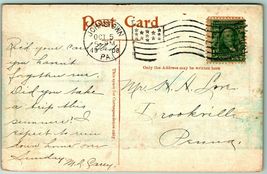 Post Card
JOHNSTOWN
OCT 5
1908
PA.
Only the Address may be written here
Rec'd your card
you haven't
forgotten me.
Did you take
a trip this
summer? I
expect to run
down home on
Sunday
Mr. H. H. Love
Brookville
Penna